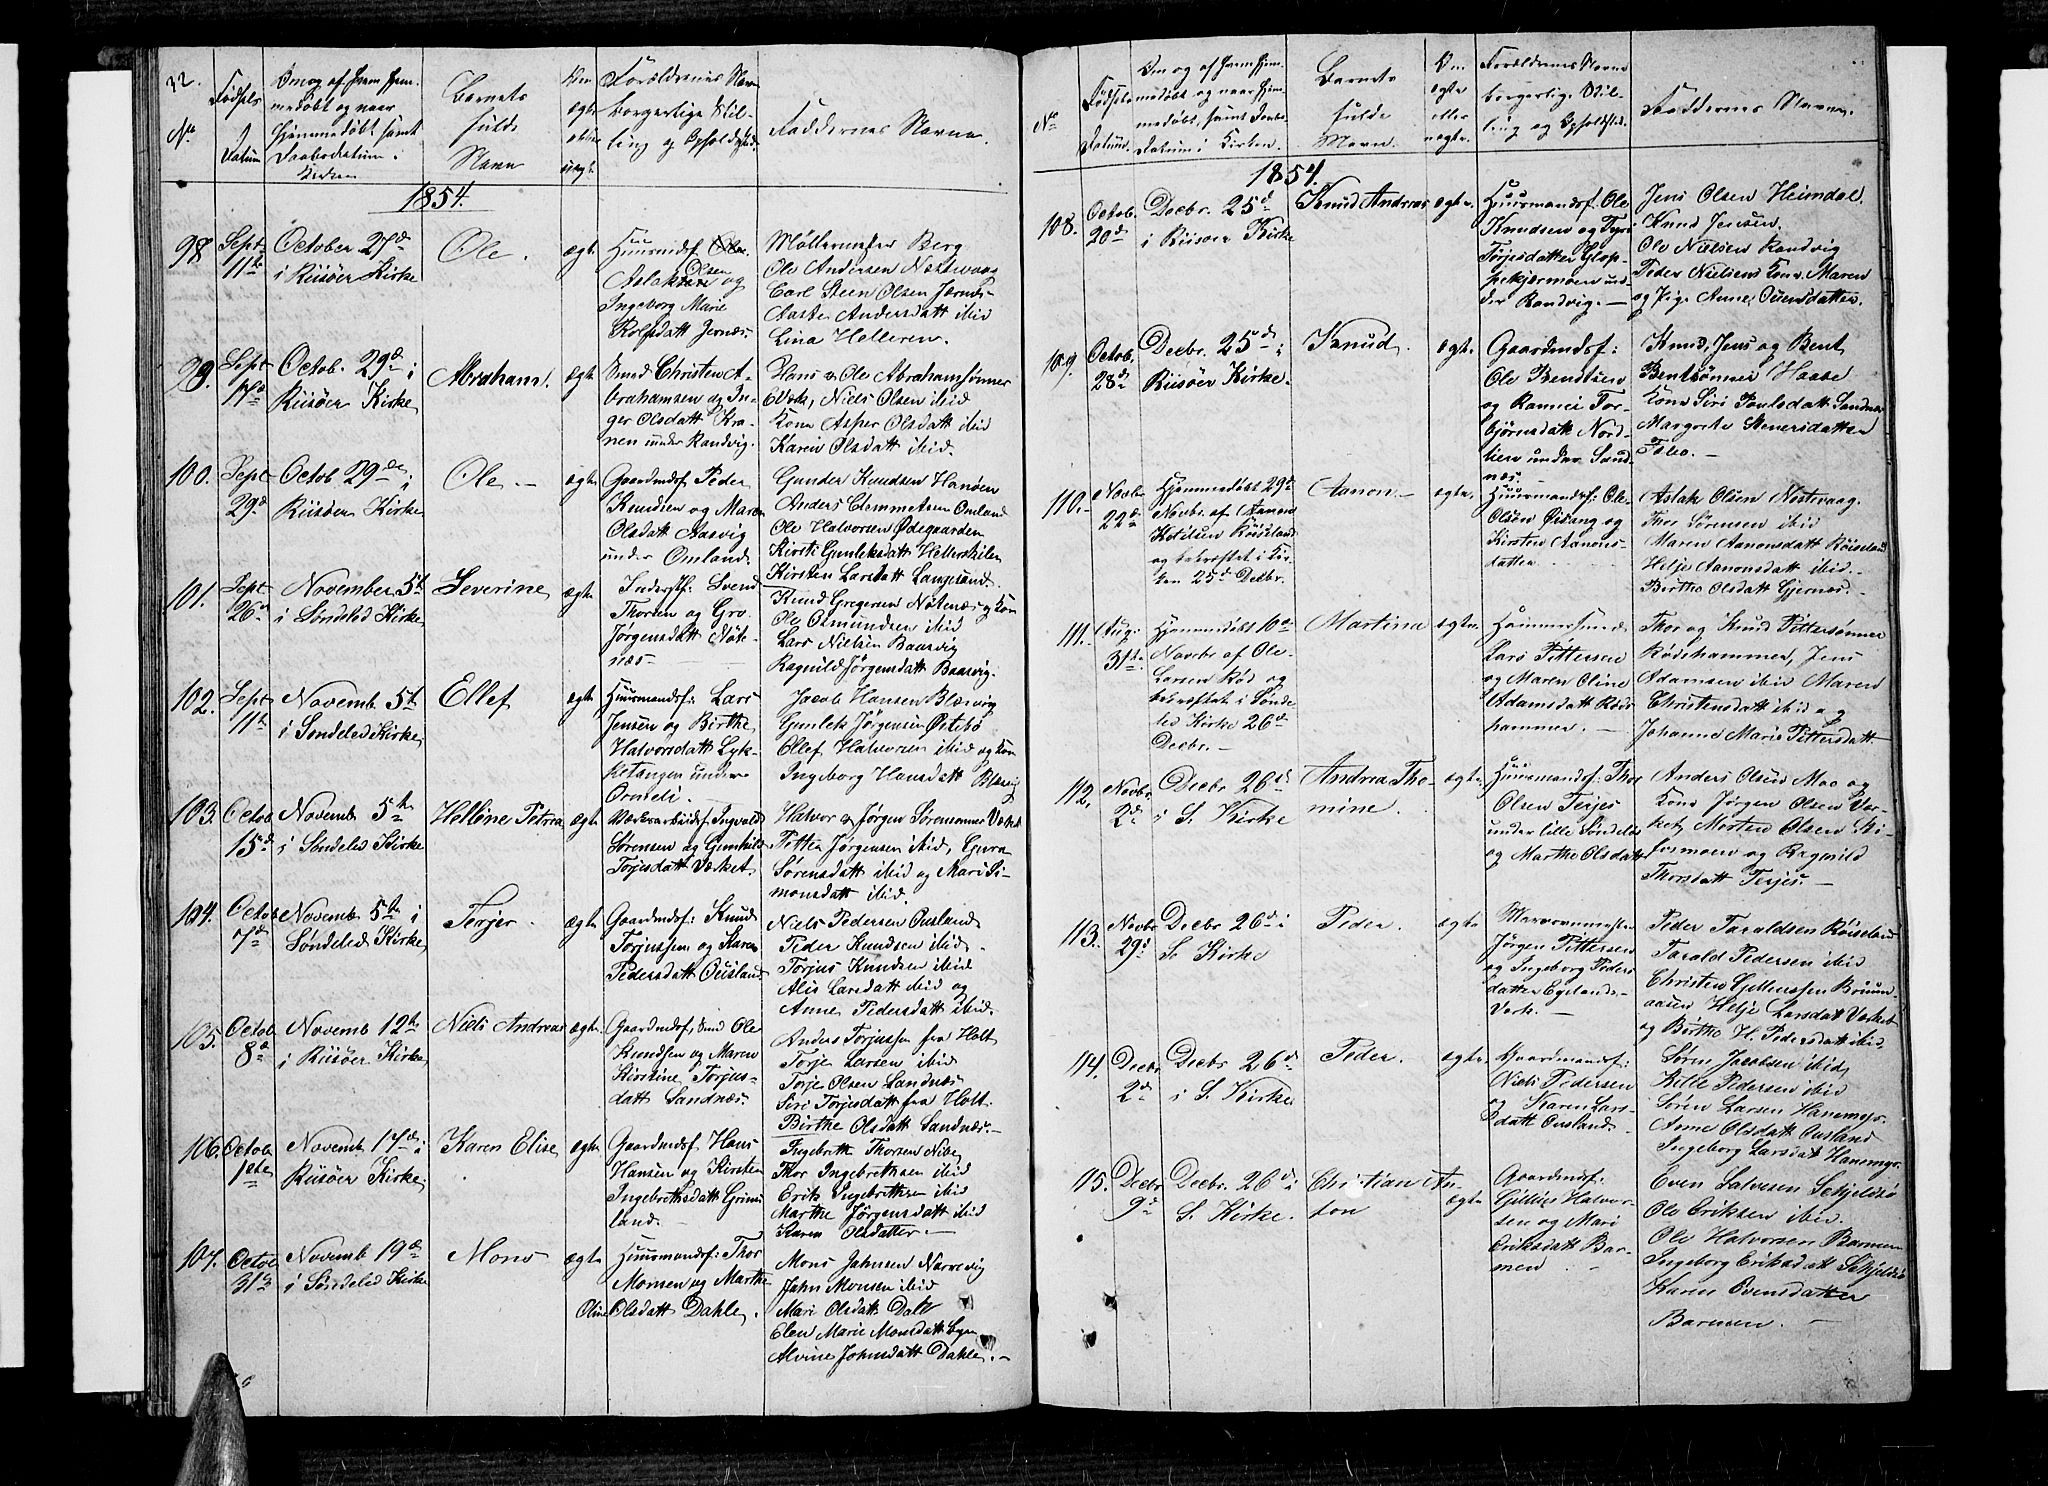 32.
No
Fødsels
Datum
Om og af hvem hjem-
medøbt og naar
Hjemmedøbt samt
Daabsdatum i
Kirken
Barnets
fulde
Navn
Om
ægte
eller
uægte
Forældrenes Navn
borgerlige Stil-
ling og Opholdssted.
Faddernes Navne.
1854.
98
Sept
11te
October 27de
i Riisøer Kirke
Ole.
ægte
Huusmdsf.
Aslaksen Olsen og
Ingeborg Marie
Rolfsdatt Jernæs.
Møllermester Berg
Ole Andersen Næstvaag
Carl Steen Olsen Jernæs
Aaste Andersdatt ibid
Lina Helleren.
99.
Sept
17de
Octob. 29de i
Riisøer Kirke
Abraham.
ægte
Smed Christen A-
brahamsen og In-
ger Olsdatt Kra-
nen under Randvig.
Hans & Ole Abrahamsønner
Niels Olsen ibid
Kone Asper Olsdatt ibid
Karen Olsdatt ibid.
100.
Sept
29de
Octob 29de i
Riisøer Kirke
Ole. –
ægte
Gaardmdsf Peder
Knudsen og Maren
Olsdatt Aasvig
under Omland.
Gunder Knudsen Hanøen
Anders Clemmetsen Omland
Ole Halvorsen Ødegaarden
Kirsti Gunleksdatt Hellerskilen
Kirsten Larsdatt Langsand.
101.
Sept
26de
November 5te
i Søndeled Kirke,
Severine
ægte
Inderstf: Svend
Thorsen og Gro
Jørgensdatt Nøte-
næs –
Knud Gregersen Nøtenæs og Kone
Ole Osmundsen ibid
Lars Nielsen Baasvig
Ragnild Jørgensdatt Baasvig.
102.
Sept
11te
Novemb 5te
i Søndeled Kirke,
Ellef
ægte
Huusmandsf: Lars
Jensen og Birthe
Halvorsdatt Lyk-
ketangen under
Ormeli.
Jacob Hansen Blæsvig
Gunlek Jørgensen Østebø
Ellef Halvorsen ibid og Kone
Ingeborg Hansdatt Blæsvig
103.
Octob
15de
Novemb 5te
i Søndeled Kirke
Helléne Petrea
ægte
Værksarbeidsf. Ingvald
Sørensen og Gunhild
Torjesdatt Værket.
Halvor og Jørgen Sørensønner Værket
Petter Jørgensen ibid, Gura
Sørensdatt ibid og Mari Si-
monsdatt ibid.
104.
Octob
7de
Novemb 5te i
Søndeled Kirke,
Terjer.
ægte
Gaardmdsf: Knud
Torjussen og Karen
Pedersdatt Ousland
Niels Pedersen Ousland
Peder Knudsen ibid.
Torjus Knudsen ibid
Alis Larsdatt ibid og
Anne Pedersdatt ibid.
105.
Octob
8de
Novemb 12te
i Riisøer Kirke,
Niels Andreas
ægte
Gaardmdsf, Smd Ole
Knudsen og Maren
Kirstine Torjus-
datt Sandnæs.
Anders Torjussen fra Holt
Torje Larsen ibid
Torje Olsen Sandnæs
Siri Torjesdatt fra Holt.
Birthe Olsdatt Sandnæs. –
106.
Octob
1ste
Novemb 17de i
Riisøer Kirke.
Karen Elise
ægte
Gaardmdsf. Hans
Hansen og Kirsten
Ingebrethsdatt Grims-
land. –
Ingebreth Thorsen Nibe,
Thor Ingebrethsen ibid
Erik Ingebrethsen ibid
Marthe Jørgensdatt ibid
Karen Olsdatter. –
107.
Octob
31te
Novemb 19de
i Søndeled Kirke
Mons
ægte
Huusmandsf: Thor
Monsen og Marthe
Oline Olsdatt Dahle.
Mons Johnsen Narrevig
John Monsen ibid
Mari Olsdatt Dale
Elen Marie Monsdatt
Alvine Johnsdatt Dahle. –
No
Fødsels
Datum.
Om og af hvem hjem-
medøbt og naar hjem-
medøbt, samt Daabs-
Datum i Kirken.
Barnets
fulde
Navn.
Om
ægte
eller
uægte.
Forældrenes Navne
borgerlige Stil-
ling og Opholdssted.
Faddernes Navne.
1854.
108.
Octob.
20de
Decbr. 25de
i Riisøer Kirke
Knud Andreas
ægte.
Huusmandsf. Ole
Knudsen og Tyri
Torjesdatter Glop-
pekjærmoen un-
der Randvig. –
Jens Olsen Heimdal.
Knud Jensen.
Ole Nielsen Randvig
Peder Nielsens Kone Maren
og Pige Anne Ovensdatter.
109.
Octob.
28de
Decbr. 25de i
Riisøer Kirke.
Knud.
ægte.
Gaardmdsf:
Ole Bendtsen
og Rannei Tor-
bjørnsdatt Nord-
lien under Sand-
næs.
Knud, Jens og Bent
Bentsønner Haabe
Kone Siri Poulsdatt Sandnæs
Margrete Stenersdatter
110.
Novbr.
22de
Hjemmedøbt 29te
Novbr. af Aanon
Ketilsen Røiseland
og bekræftet i Kir-
ken 25de Decbr.
Aanon. –
ægte.
Huusmandsf: Ole
Olsen Øisang og
Kirsten Aanons-
datter.
Aslak Olsen Nestvaag.
Thor Sørensen ibid
Maren Aanonsdatt Røiseland
Helje Aanonsdatt ibid. –
Birthe Olsdatt Gjernæs. –
111.
Aug.
31te
Hjemmedøbt 10de
Novbr af Ole
Larsen Rød og
bekræftet i Sønde-
led Kirke 26de
Decbr. –
Martine
ægte.
Lars Pettersen
og Maren Oline
Adamsdatt Røds-
hammer. –
Thor og Knud Pettersønner
Rødshammer, Jens
Adamsen ibid Maren
Christensdatt ibid og
Johanne Marie Pettersdatt.
112.
Novbr.
2de
Decbr 26de
i S. Kirke
Andrea Tho-
mine.
ægte.
Huusmandsf: Thor
Olsen Terjes
under lille Søndeled
og Marthe Olsdatt
Anders Olsen Moe og
Kone Jørgen Olsen Vær-
ket, Morten Olsen Ki-
lesmoen og Ragnild
Thorsdatt Terjes. –
113.
Novbr
29de
Decbr 26de i
S. Kirke
Peder.
ægte
Masovnmester
Jørgen Pettersen
og Ingeborg Peders
datter Egelands-
Værk. –
Peder Taraldsen Røiseland
Tarald Pedersen ibid
Christen Gullerssen Bruun-
aasen Helje Larsdat Værket
og Birthe H. Pedersdatt ibid.
114.
Decbr
2de
Decbr 26de
i S. Kirke
Peder.
ægte.
Gaardmandsf:
Niels Pedersen
og Karen Lars-
datt Ousland.
Søren Jacobsen ibid,
Kittel Pedersen ibid
Søren Larsen Hanemyr.
Anne Olsdatt Ousland
Ingeborg Larsdat Hanemyr.
115.
Decbr
9de
Decbr. 26de i
S. Kirke.
Christian An-
ton
ægte.
Gaardmdsf.
Gullius Halvor-
sen og Mari
Eriksdatt Bar-
men
Even Salvesen Skjeldsø
Ole Eriksen ibid.
Ole Halvorsen Barmen
Ingeborg Eriksdatt Skjeldsø
Karen Evensdatter
Barmen. –